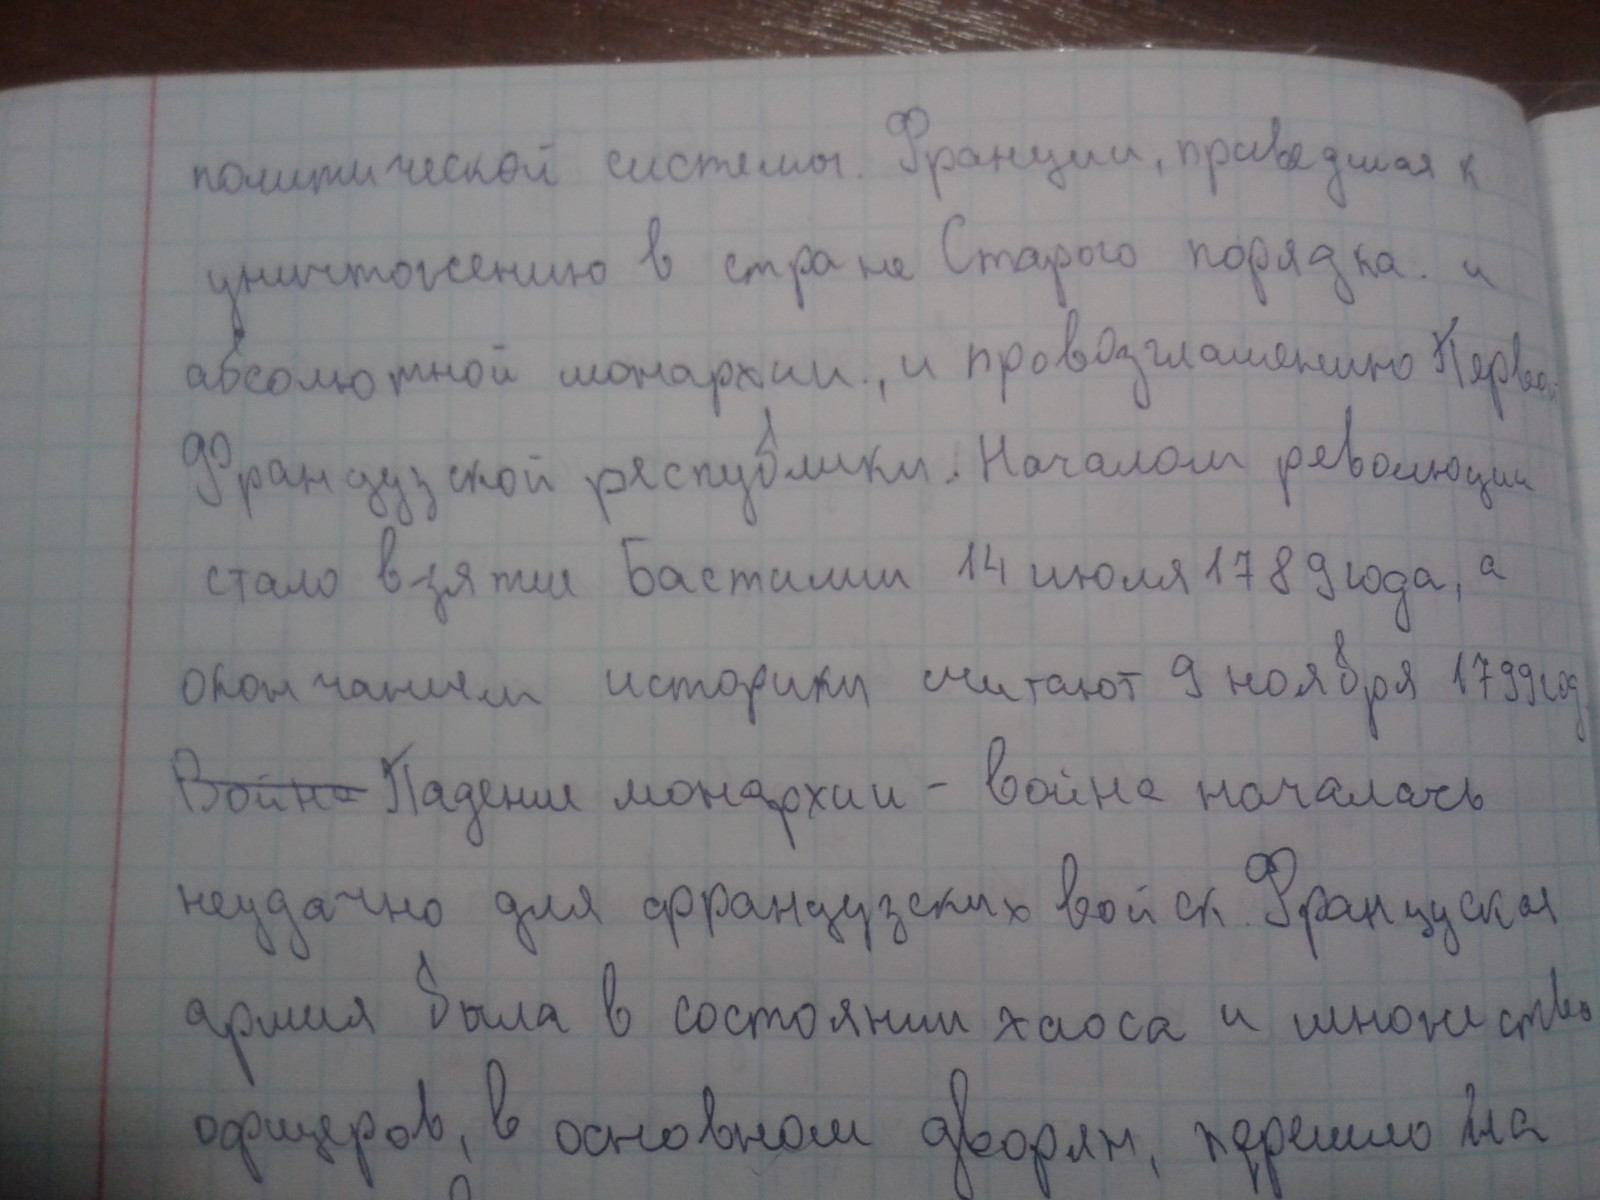 политической системы. Франции, приведшая к
уничтожению в стране Старого порядка. и
абсолютной монархии., и провозглашению Первой
Французской республики. Началом революции
стало взятие Бастилии 14 июля 1789 года, а
окончанием историки считают 9 ноября 1799 год
Война Падение монархии - война началась
неудачно для французских войск. Француская
армия была в состоянии хаоса и множество
офицеров, в основном дворян, перешло на